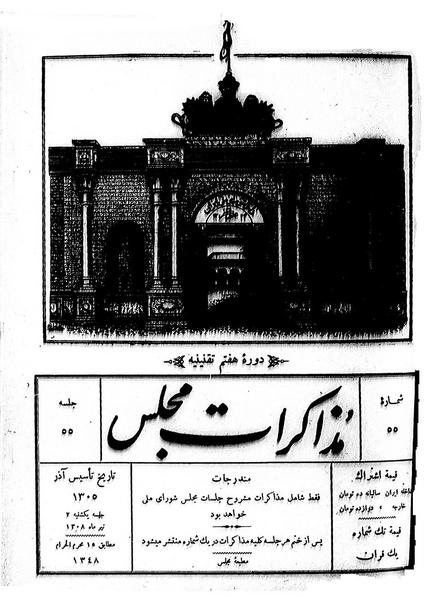 دورهٔ هفتم تقنینیه
شمارهٔ
۵۵
مذاکرات مجلس
جلسه
۵۵
قیمة اشتراک
داخله ایران سالیانه ده تومان
خارجه » دوازده تومان
قیمة تک شماره
یک قران
مندرجات
فقط شامل مذاکرات مشروح جلسات مجلس شورای ملی
خواهد بود
پس از ختم هر جلسه کلیه مذاکرات در یک شماره منتشر میشود
مطبعهٔ مجلس
تاریخ تأسیس آذر
۱۳۰۵
جلسه یکشنبه ۲
تیر ماه ۱۳۰۸
مطابق ۱۵ محرم الحرام
۱۳۴۸